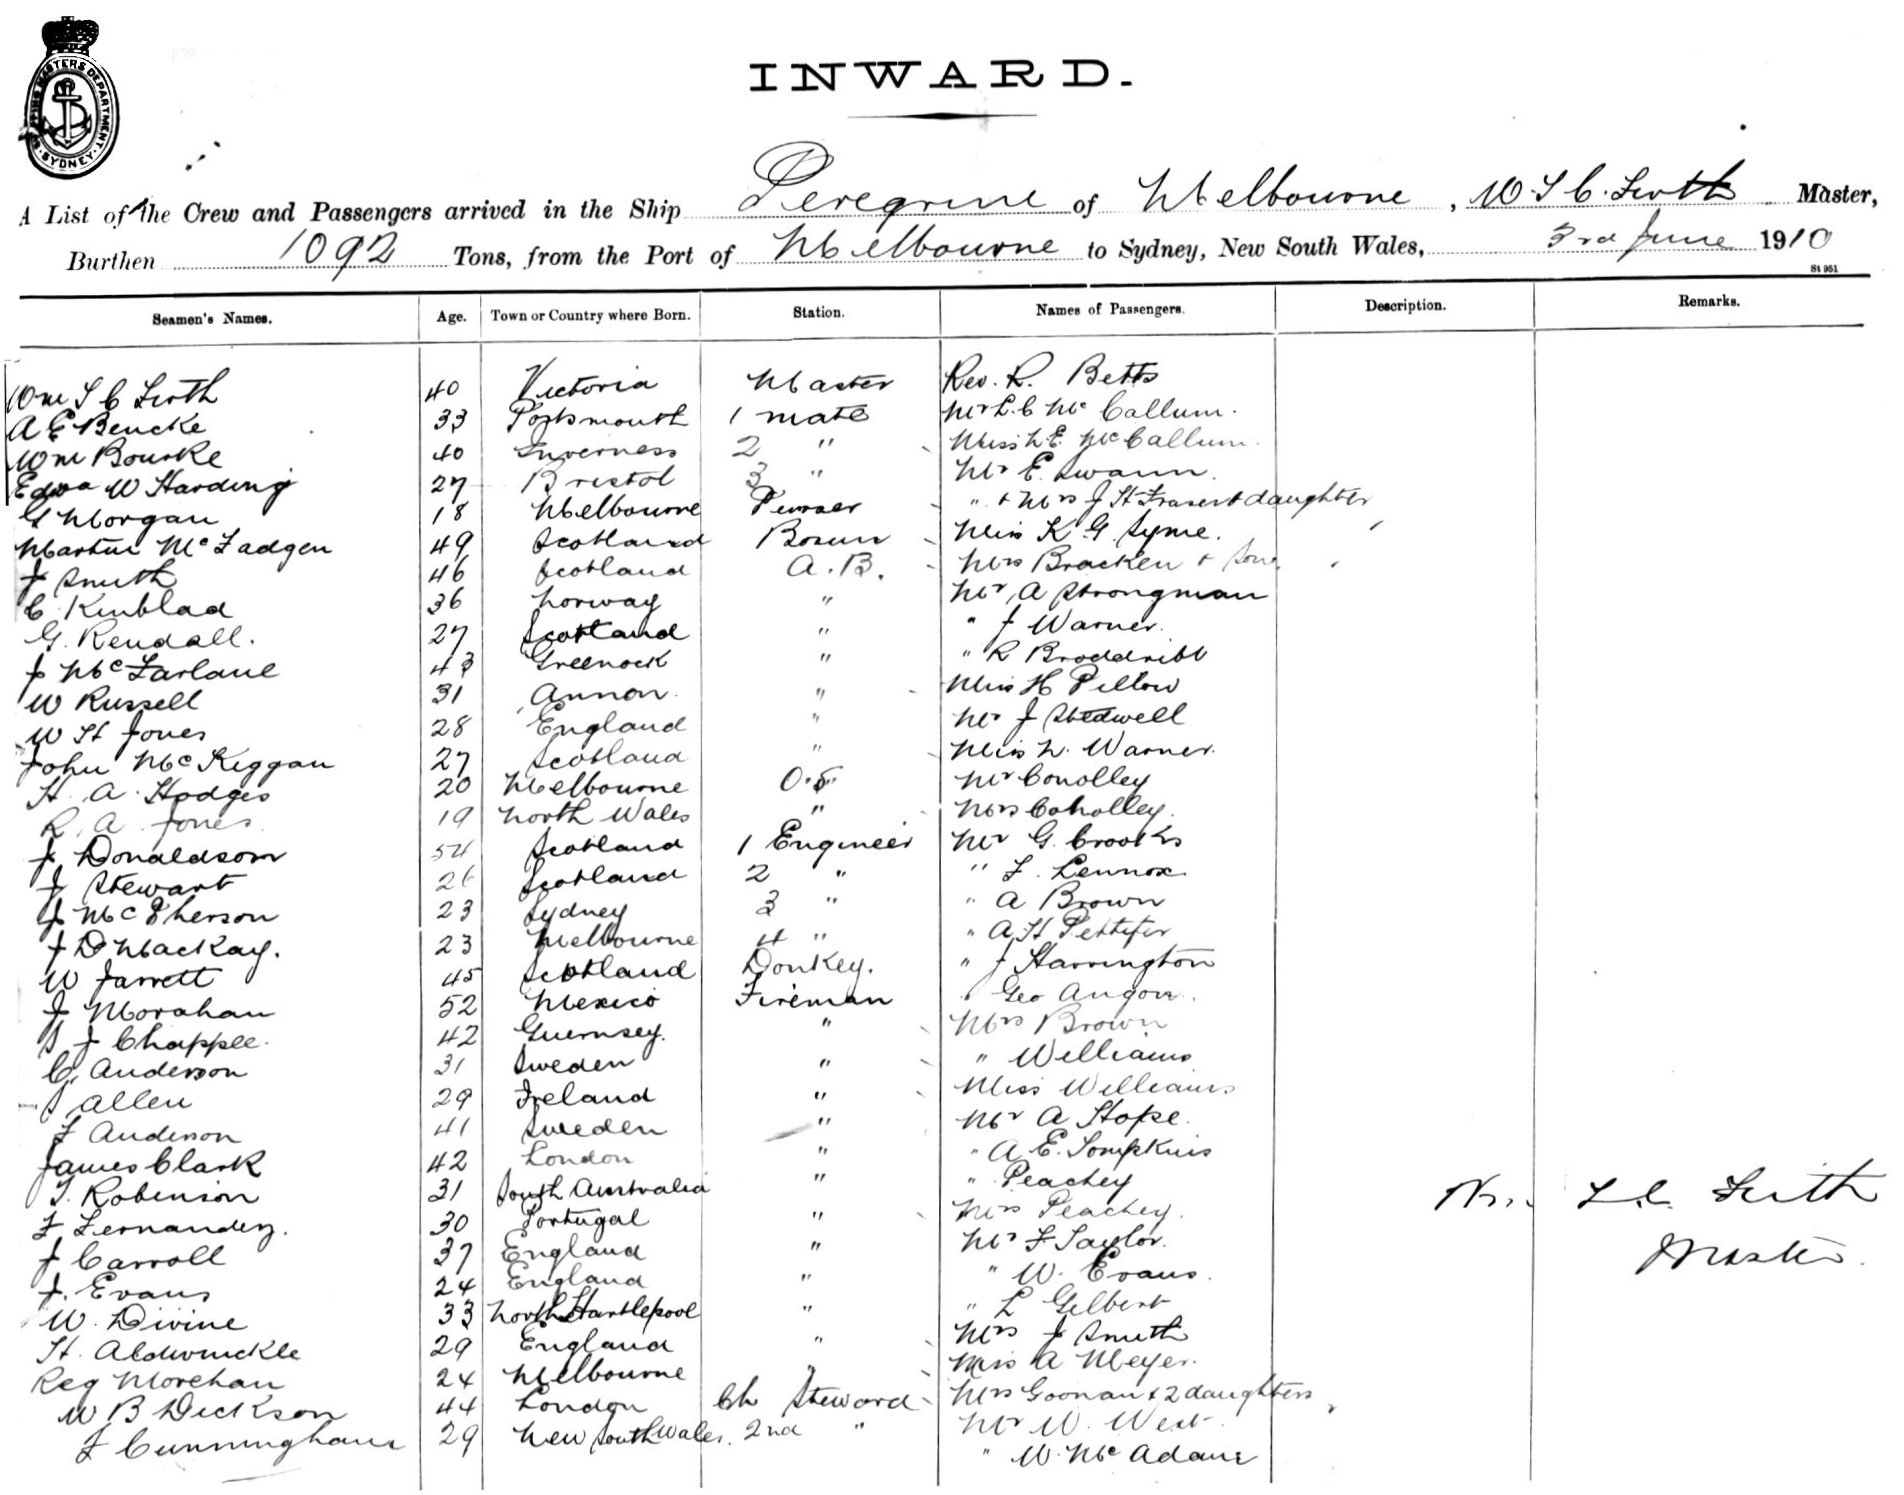 SHIPPING MASTERS DEPARTMENT. SYDNEY.
INWARD.
A List of the Crew and Passengers arrived in the Ship Peregrine of Melbourne, W. S C. Firth Master,
Burthen 1092 Tons, from the Port of Melbourne to Sydney, New South Wales, 3rd June 1910
St 951
Seamen's Names. Age. Town or Country where Born. Station. Names of Passengers. Description. Remarks.
Wm S C Firth 40 Victoria Master Rev. R. Betts
A E Beucke 33 Portsmouth 1 mate Mr L. C McCallum.
Wm Bourke 40 Inverness 2 " Miss L E. McCallum.
Edwd W Harding 27 Bristol 3 " Mr E. Swann.
G Morgan 18 Melbourne Purser " + Mrs J H Fraser + daughter
Martin McFadgen 49 Scotland Bosun Miss K G Syme.
J Smith 46 Scotland A. B. Mrs Bracken + Son.
C. Kinblad 36 Norway " Mr A Strongman
G. Rendall. 27 Scotland " " J Warner.
J McFarlane 43 Greenock " " R Broddribb
W Russell 31 Annon. " Miss H Pillow
W H Jones 28 England " Mr J Stedwell
John McKiggan 27 Scotland " Miss L. Warner.
H. A. Hodges 20 Melbourne O.S. Mr Conolley
R. A. Jones 19 North Wales " Mrs Conolley.
J Donaldson 54 Scotland 1 Engineer Mr G. Crooks
J Stewart 26 Scotland 2 " " F. Lennox.
J McPherson 23 Sydney 3 " " A Brown
J D Mackay. 23 Melbourne 4 " " A H Pettifer
W Jarrett 45 Scotland Donkey. " J Harrington
J Morahan 52 Mexico Fireman " Geo Angow.
J Chappee. 42 Guernsey. " Mrs Brown
C, Anderson 31 Sweden " " Williams
Allen 29 Ireland " Miss Williams
F Anderson 41 Sweden " Mr A Hope.
James Clark 42 London " " A E. Tompkins
T. Robinson 31 South Australia " " Peachey
F Fernandez. 30 Portugal " Mrs Peachey.
J Carroll 37 England " Mr F Taylor.
J. Evans 24 England " " W. Evans.
W. Divine 33 North Hartlepool " " L Gelbert
H. Aldwinckle 29 England " Mrs J Smith
Reg Morehan 24 Melbourne " Miss A Meyer.
W B Dickson 44 London Ch Steward Mrs Goonan + 2 daughters
F Cunningham 29 New South Wales. 2nd " Mr W. West.
" W. McAdam
Firth
Master.